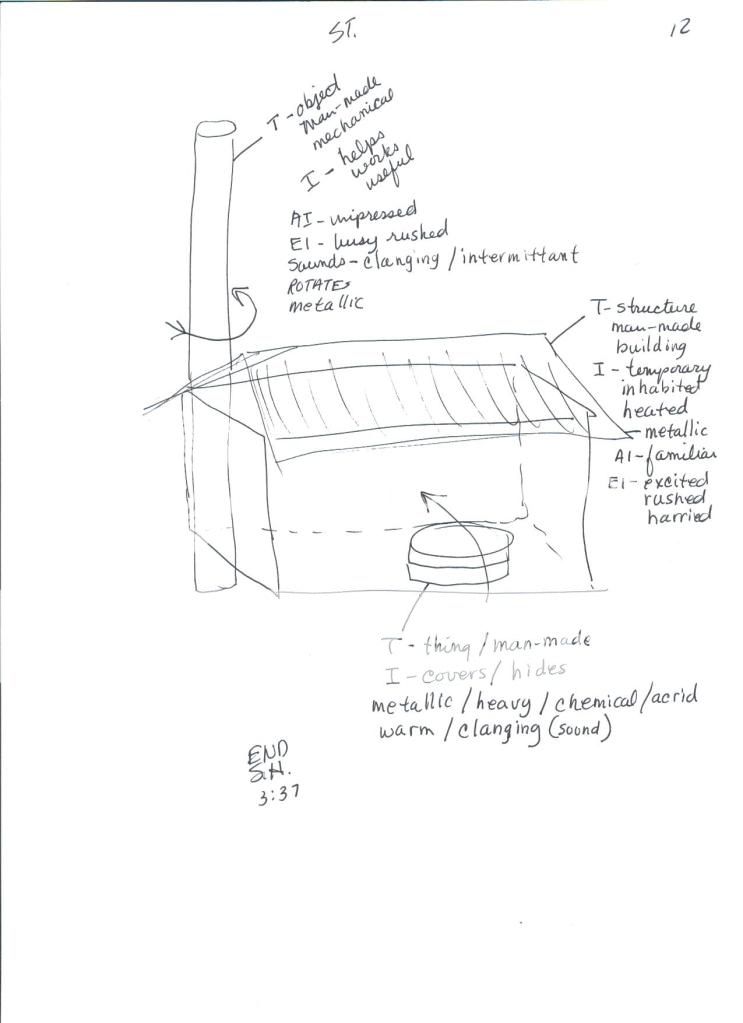 ST.
12
T - object
man-made
mechanical
I - helps
works
useful
AI - unipressed
EI - busy rushed
Sounds - clanging / intermittant
ROTATES
metallic
T - structure
man-made
building
I - temporary
inhabited
heated
- metallic
AI - familiar
EI - excited
rushed
harried
T - thing / man-made
I - covers / hides
metallic / heavy / chemical / acrid
warm / clanging (sound)
END
S.H.
3:37